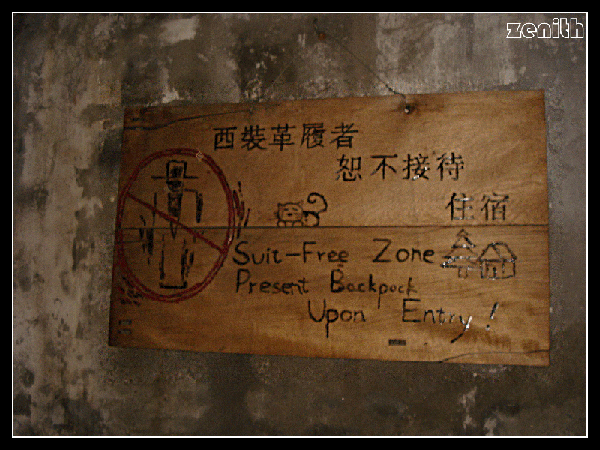 zenith
西裝革履者
恕不接待
住宿
Suit-Free Zone
Present Backpack
Upon Entry!